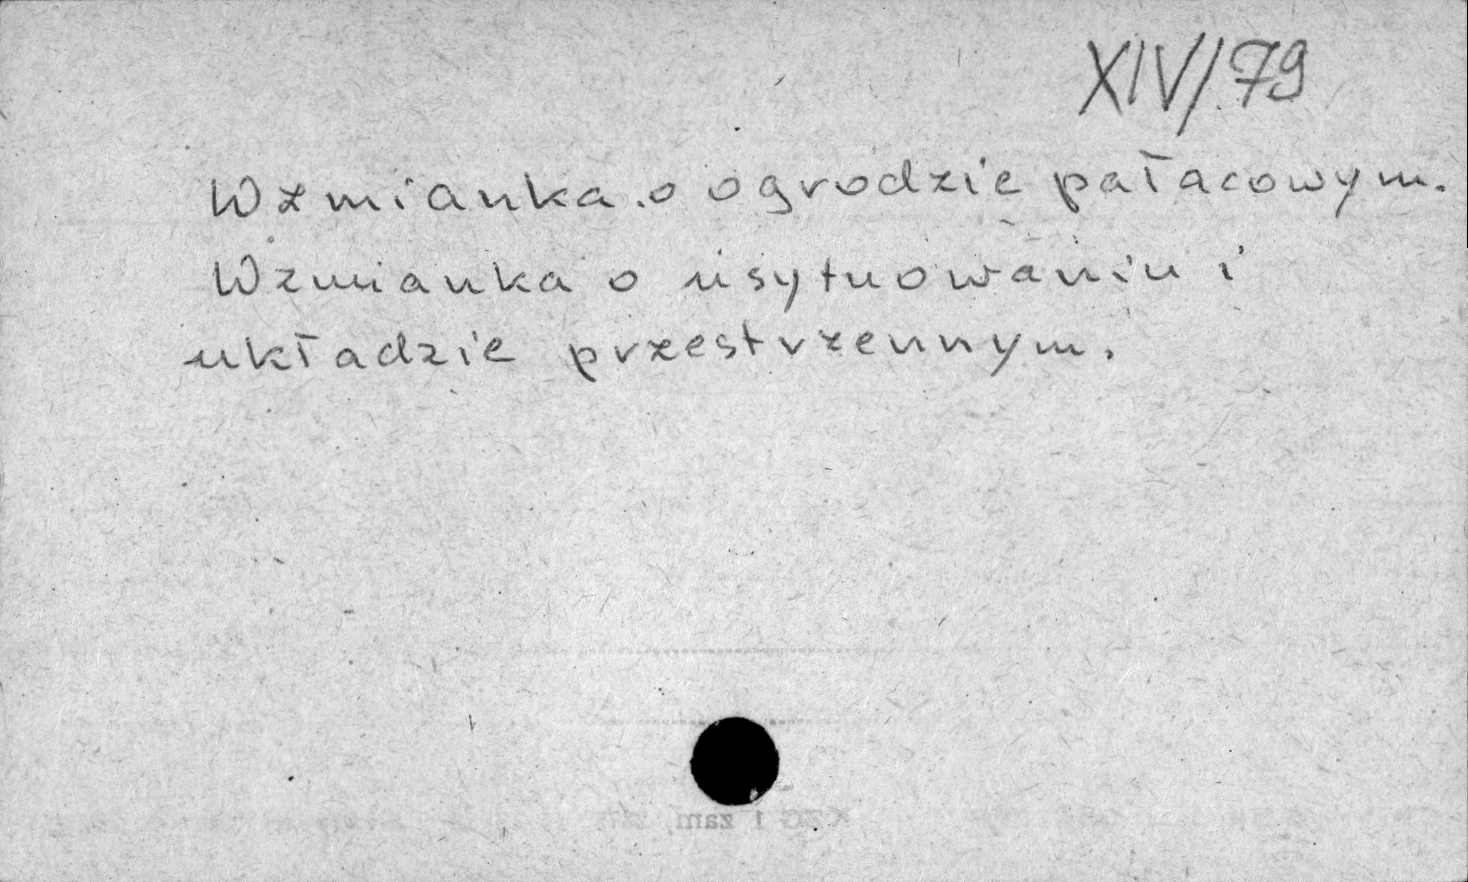 XIV/79
Wzmianka o ogrodzie pałacowym.
Wzmianka o usytuowaniu i
układzie przestrzennym.
KZG 1 zam,